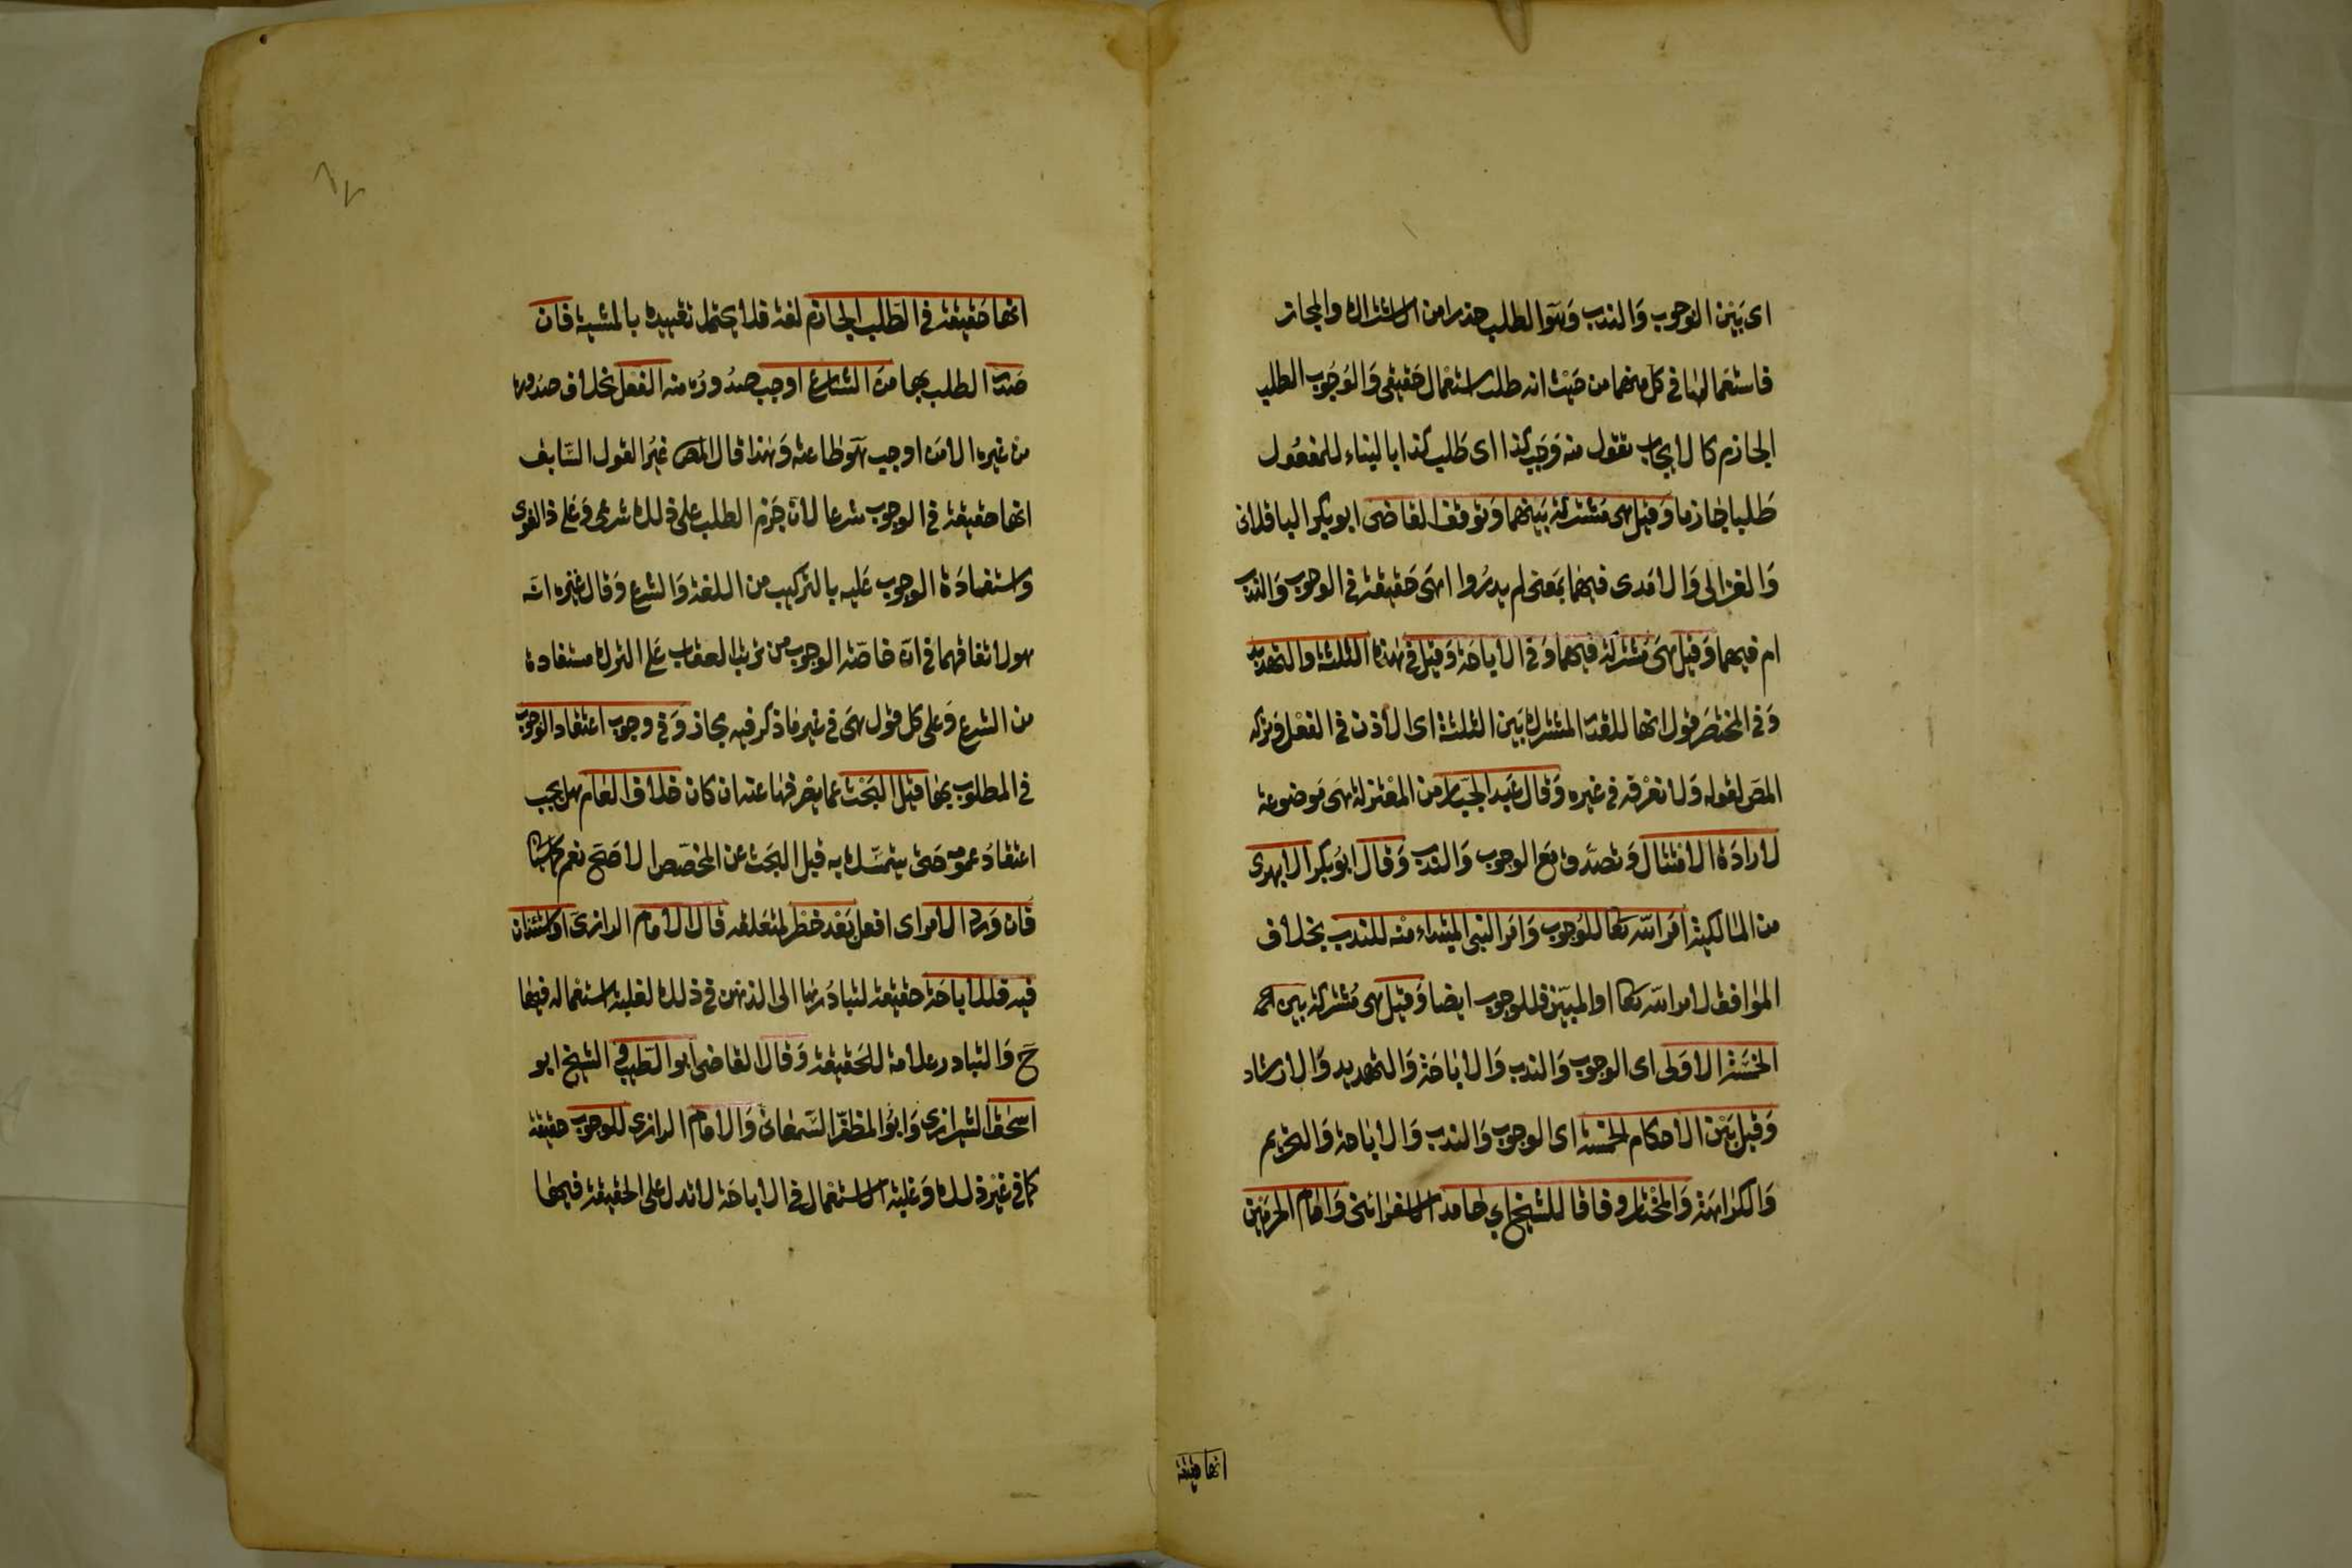 اى بَيْن الوجوب وَالندب وَهو الطلب حذرا من الاشتراك والمجاز
فاستعمالها فى كل منهما من حَيْث انه طلب استعمال حَقيقى وَالوُجُوب الطلب
الجازم كالايجاب تقول منه وَجَب كذا اى طَلب كذا بالبناء للمفعُول
طَلبا جَازما وَقيل هى مشتركة بَينهما وَتوقف القاضى ابو بكر الباقلانى
وَالغزالى وَالآمدى فيهما بمَعنى لم يدرُوا اهى حَقيقة فى الوجوب وَالندب
ام فيهما وَقيل هىَ مشتركة فيهما وَفى الاباحَة وَقيل فى هذه الثلثة والتهديد
وَفى المختصَر قول انها للقدر المشترك بَين الثلثة اى الاذن فى الفعْل وَتركه
المصَ لقوله وَلا نعْرفه فى غيره وَقال عَبد الجبّار من المعْتزلة هىَ مَوضوعة
لارادَة الامتثال وَتصدق مَع الوجوب وَالندب وَقال ابوُ بكر الابهرى
من المالكية امَر الله تعا للوُجوب وَامَر النبى المبتداء منْه للندب بخلاف
الموافق لامر الله تعا او المبيّن فللوجوب ايضا وَقيل هى مُشتركة بَين الخمسة
الخمسَة الاوَلى اى الوجوب وَالندب وَالاباحَة وَالتهديد وَالارشاد
وَقيل بَيْن الاحكام الخمسة اى الوجوب وَالندب وَالاباحة وَالتحريم
وَالكراهَة وَالمخْتار وفاقا للشيخ ابي حامد الاسفرائنى وَامَام الحرمَيْن
انها حقيقة
انها حَقيقة فى الطَلب الجازم لغة فلا يحتمل تقييده بالمشية فان
صَدَر الطلب بها مِنَ الشارع اوجب صدُورُه منه الفعْل بخلاف صدُوره
من غيره الا مَن اوجب هوَ طاعته وَهذا قال المص غيرُ القول السّابق
انها حقيقة فى الوجوب شرعا لان جَزم الطلب على ذلك شرعى وَعَلى ذا لغوى
واستفادَة الوجوب عَليه بالتركيب من اللغة وَالشرع وَقال غيره انه
هو لاتفاقهما فى انّ خاصّة الوجوب من ترتب العقاب عَلى الترك مستفادة
من الشرع وَعلى كل قول هىَ فى غير مَا ذكر فيه مجاز وَفى وجوب اعتقاد الوجوب
فى المطلوب بها قبْل البَحْث عما يصْرفها عنه ان كان خلاف العَام هل يجب
اعتقادُ عمومه حَتى يتمسّك به قبل البحَث عن المخصّص الاصَح نعم كما سياتى
فان وَرد الامر اى افعل بَعْد حَظر لمتعَلقه قال الامام الرازى اوَ استئذان
فيه فللاباحَة حقيقة لتبادُرها الى الذهن فى ذلك لغلبة استعْماله فيها
حَ وَالتبادر علامة للحَقيقة وَقال القاضى ابو الطيب وَ الشيخ ابو
اسحٰق الشيرازى وَابوُ المظفّر السّمعَانى وَالامَام الرازى للوجوب حقيقة
كما فى غيْر ذلك وَغلبة الاستعْمال فى الاباحَة لا تدل على الحقيقة فيها